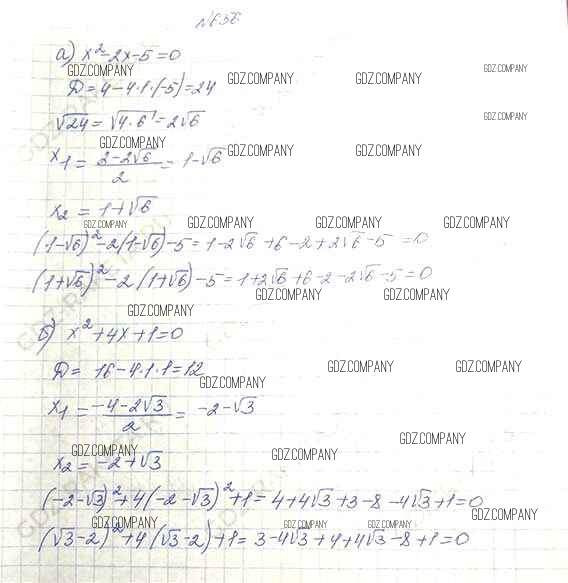 №656
а) x²-2x-5=0
GDZ.COMPANY GDZ.COMPANY GDZ.COMPANY GDZ.COMPANY
D=4-4·1·(-5)=24
√24=√4·6=2√6 GDZ.COMPANY
GDZ.COMPANY GDZ.COMPANY GDZ.COMPANY
x₁=(2-2√6)/2=1-√6
x₂=1+√6
GDZ.COMPANY GDZ.COMPANY GDZ.COMPANY GDZ.COMPANY
(1-√6)²-2(1-√6)-5=1-2√6+6-2+2√6-5=0
(1+√6)²-2(1+√6)-5=1+2√6+6-2-2√6-5=0
GDZ.COMPANY GDZ.COMPANY
GDZ.COMPANY
б) x²+4x+1=0
D=16-4·1·1=12 GDZ.COMPANY GDZ.COMPANY
GDZ.COMPANY
x₁=(-4-2√3)/2=-2-√3
GDZ.COMPANY
GDZ.COMPANY GDZ.COMPANY
x₂=-2+√3
(-2-√3)²+4(-2-√3)²+1=4+4√3+3-8-4√3+1=0
GDZ.COMPANY GDZ.COMPANY GDZ.COMPANY GDZ.COMPANY
(√3-2)²+4(√3-2)+1=3-4√3+4+4√3-8+1=0